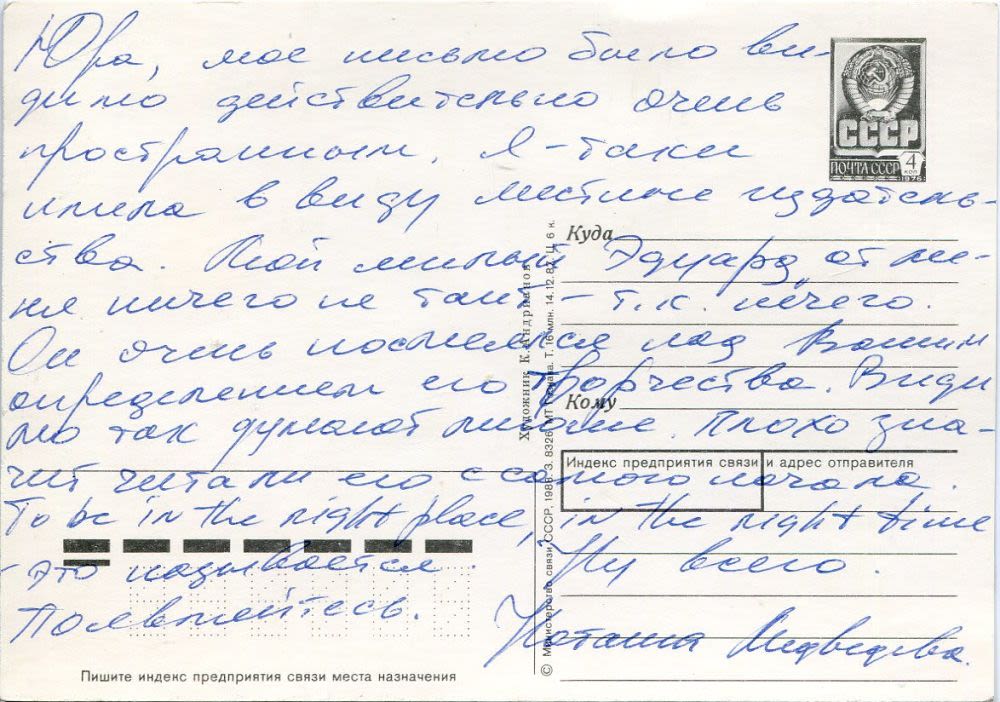 Юра, мое письмо было ви-
димо действительно очень
пространным. Я-таки
имела в виду местные издатель-
ства. Мой милый Эдуард от ме-
ня ничего не таит – т.к. нечего.
Он очень посмеялся над Вашим
определением его творчества. Види
мо так думают многие. Плохо зна-
чит читали его с самого начала.
To be in the right place, in the right time
- это называется. Ну всего.
Наташа Медведева.
СССР
ПОЧТА СССР 4 коп
1976
Куда
Кому
Индекс предприятия связи и адрес отправителя
Художник К. Андрианов
© Министерство связи СССР, 1988. З. 8326. МТ Гознака. Т. 16 млн. 14.12.87. Ц. 6 к.
Пишите индекс предприятия связи места назначения